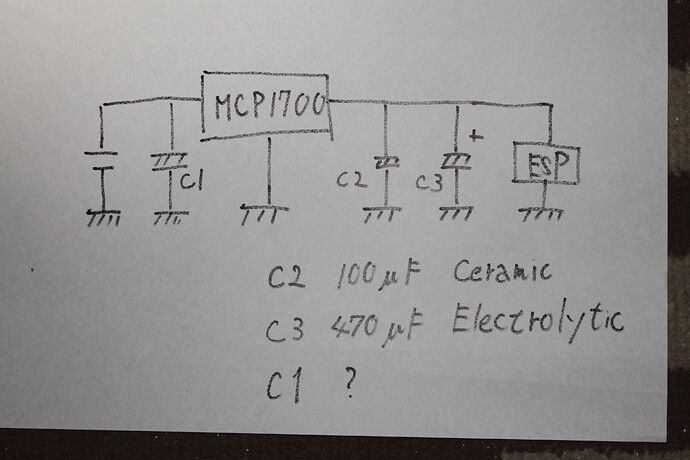 MCP1700
+
C1
C2
C3
ESP
C2 100μF Ceramic
C3 470μF Electrolytic
C1 ?